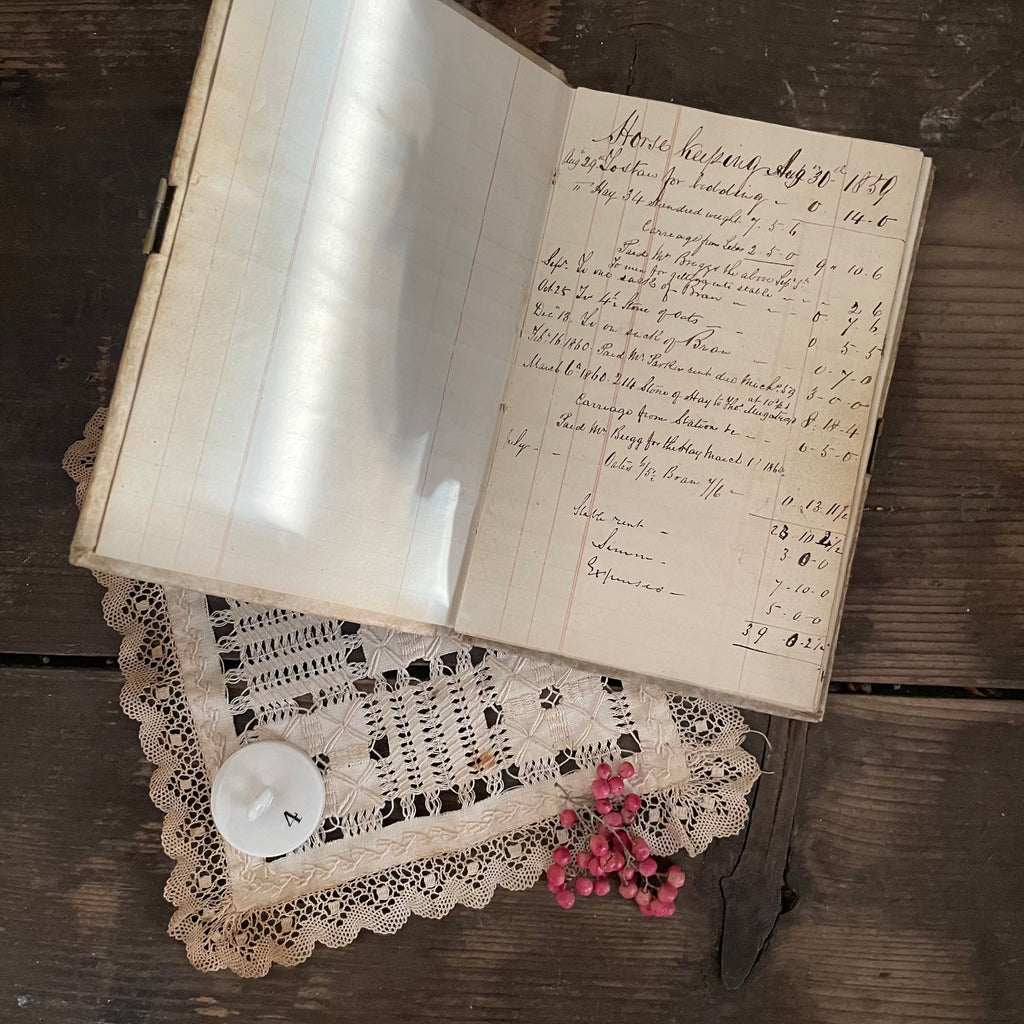 Horse keeping Aug 30th 1859
Aug 29th To straw for bedding - 0. 14-0
" Hay 34 Hundred weight 7-5-6
Carriage from 2-5-0 9 " 10-6
Paid Mr Briggs the above Sep
To men for getting into stable - - - 2 6
Sepr. To one sack of Bran - - - 0. 7-6
Oct 25 To 4 Stone of oats - - 0 5-5
Dec 13. To on sack of Bran - 0-7-0
Feb 16 1860. Paid Mr Parker rent due 59 3-0-0
March 6th 1860. 214 Stone of Hay to Thos at 8-18-4
Carriage from Station - - 0-5-0
Paid Mr Bugg for the Hay March 1st 1860
July - - Oates Bran 7/6 - 0-13-11/2
23 10 2 1/2
Stable rent - 3 0-0
7-10-0
Expenses - 5-0-0
39 0-2 1/2
4